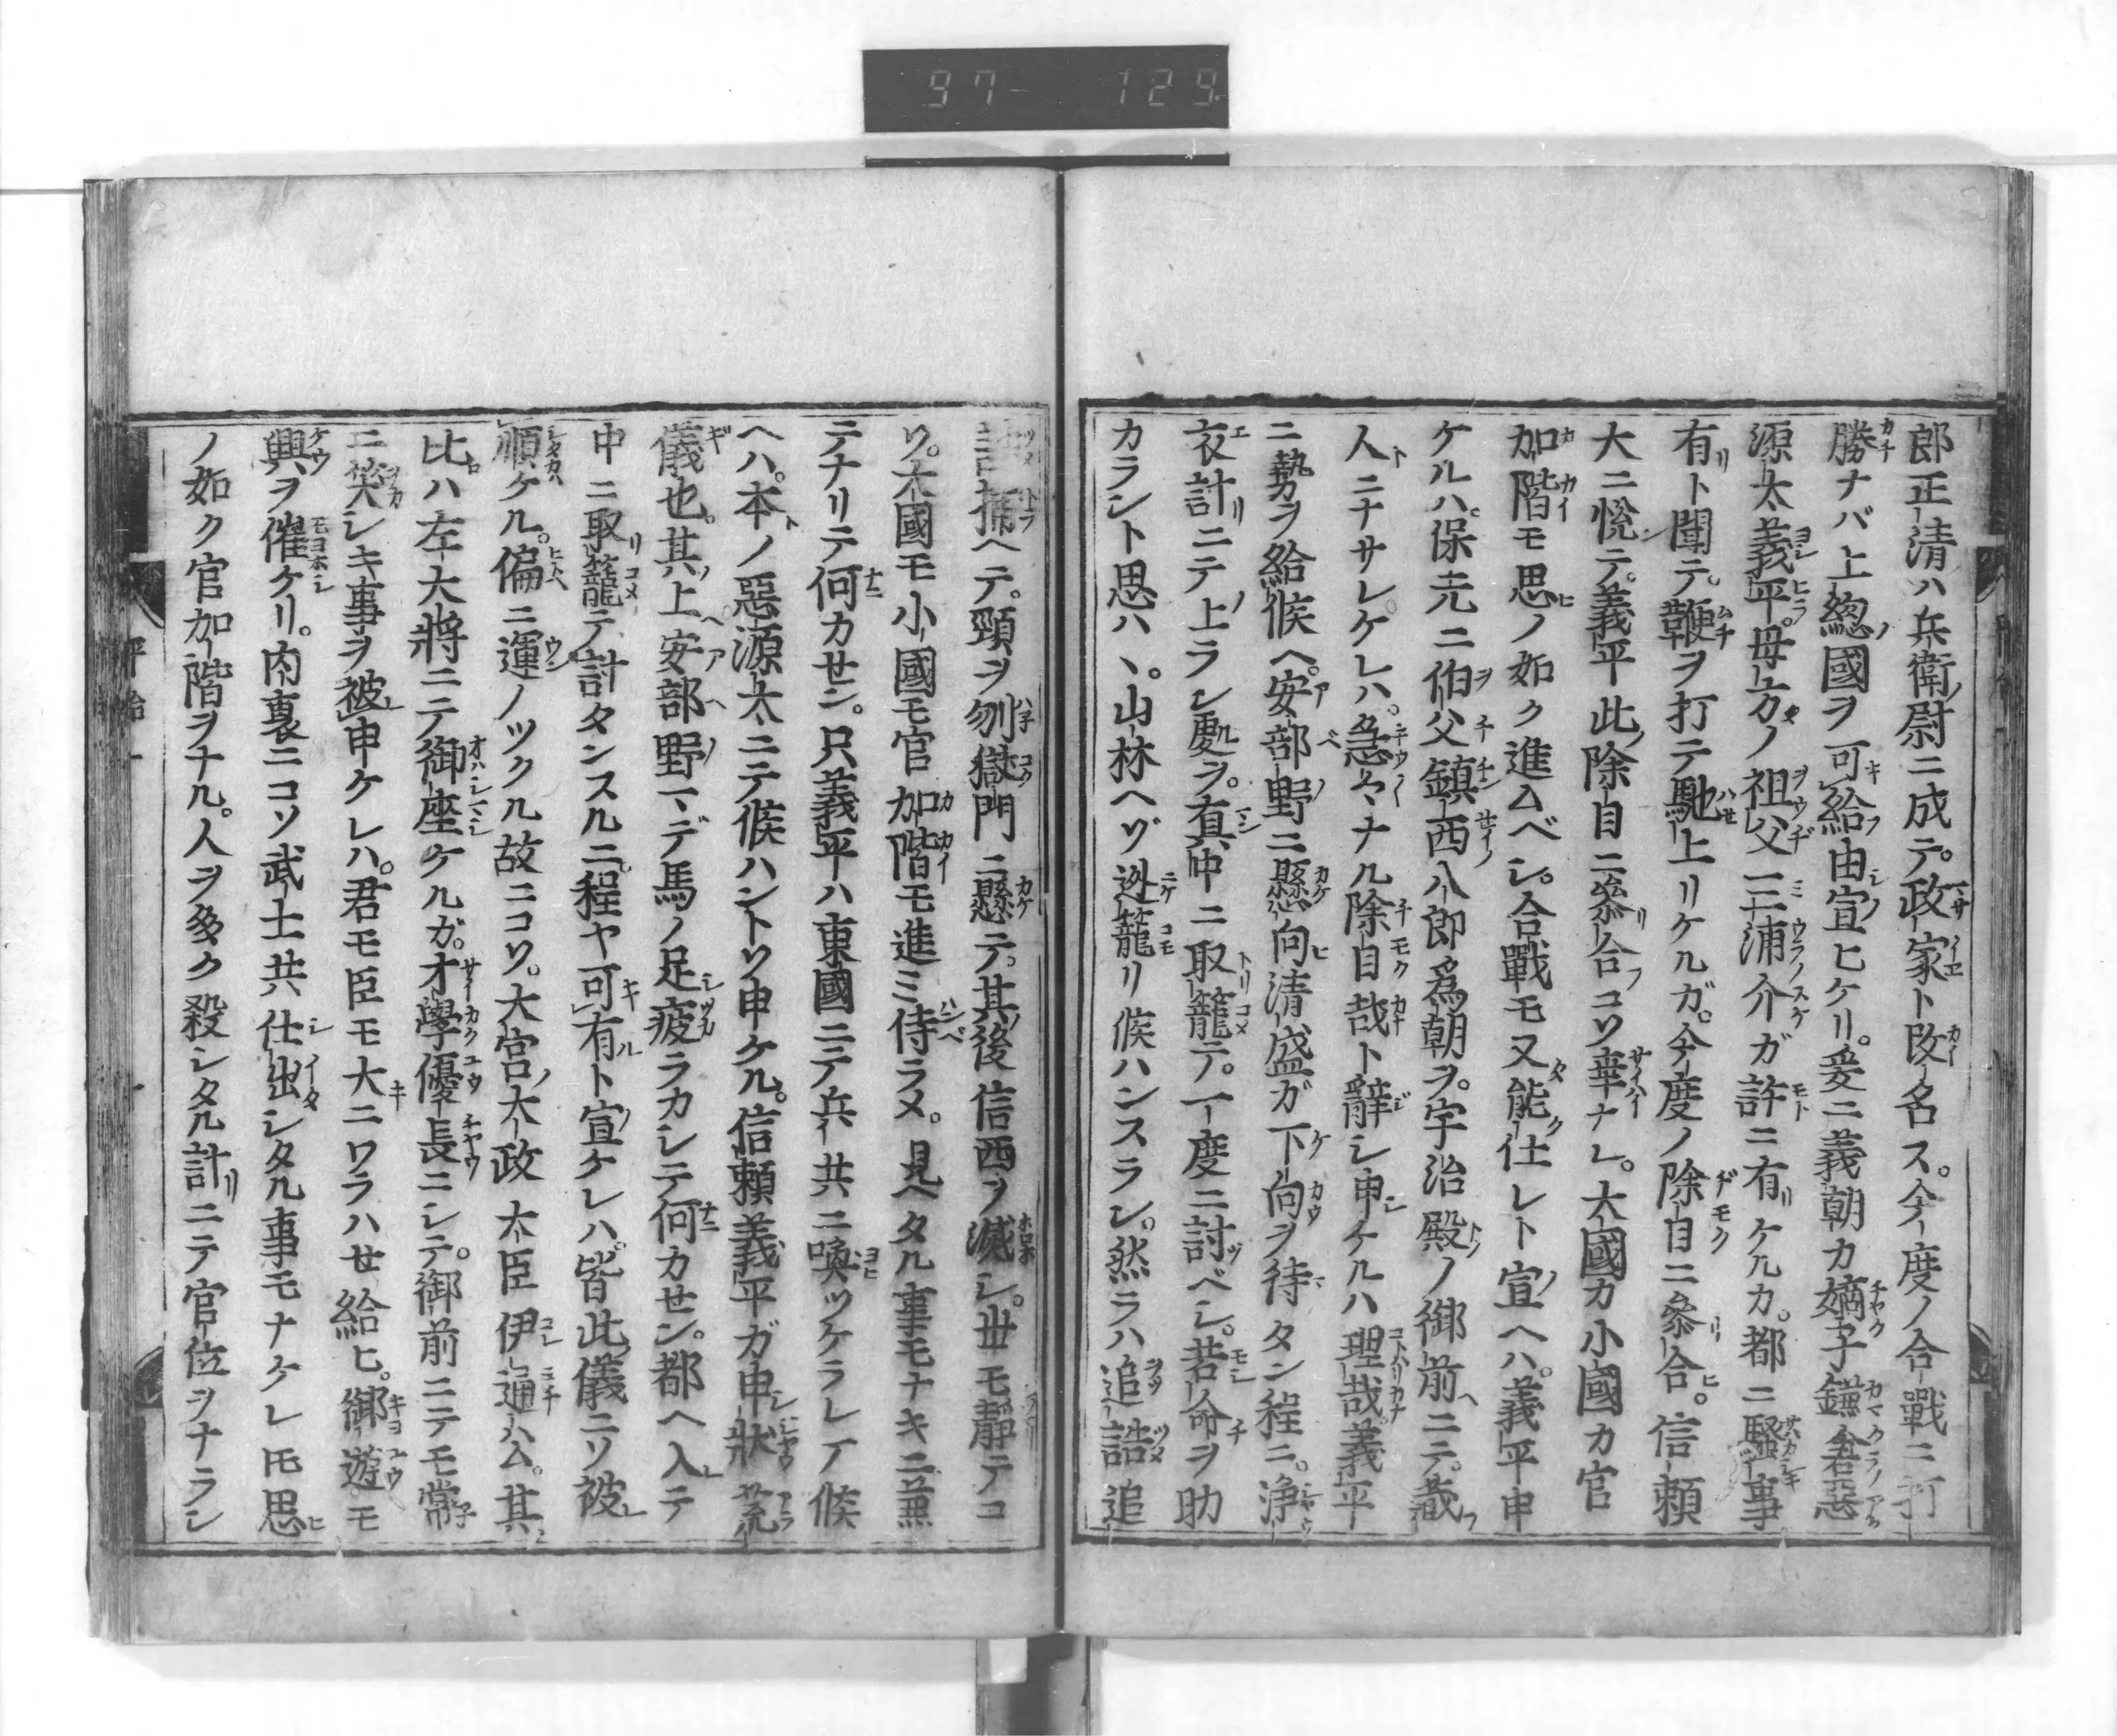 97 129
郎正清ハ兵衛尉ニ成テ。政家ト改名ス。今度ノ合戰ニ打
勝ナバ上総國ヲ可給由宣ヒケリ。爰ニ義朝カ嫡子鎌倉惡
源太義平。母方ノ祖父三浦介ガ許ニ有ケルカ。都ニ騒事
有ト聞テ。鞭ヲ打テ馳上リケルガ。今度ノ除目ニ參合。信頼
大ニ悦テ。義平此除目ニ參合コソ幸ナレ。大國カ小國カ官
加階モ思ノ如ク進ムベシ。合戰モ又能仕レト宣ヘハ。義平申
ケルハ。保元ニ伯父鎮西八郎爲朝ヲ。宇治殿ノ御前ニテ。蔵
人ニナサレケレハ。急々ナル除目哉ト辭シ申ケルハ理哉。義平
ニ勢ヲ給候ヘ。安部野ニ懸向清盛ガ下向ヲ待タン程ニ。浄
衣計ニテ上ラン處ヲ。真中ニ取籠テ。一度ニ討ベシ。若命ヲ助
カラント思ハヽ。山林ヘゾ迯籠リ候ハンスラン。然ラハ追詰追
詰捕ヘテ。頸ヲ刎獄門ニ懸テ。其後信西ヲ滅シ。世モ靜テコ
ソ。大國モ小國モ官加階モ進ミ侍ラメ。見ヘタル事モナキニ兼
テナリテ何カせン。只義平ハ東國ニテ兵共ニ喚ツケラレテ候
ヘハ。本ノ惡源太ニテ候ハントソ申ケル。信頼義平ガ申狀荒
儀也。其上安部野マデ馬ノ足疲ラカシテ何カせン。都ヘ入テ
中ニ取籠テ計タンスルニ。程ヤ可有ト宣ケレハ。皆此儀ニソ被
順ケル。偏ニ運ノツクル故ニコソ。大宮太政大臣伊通ハム。其
比ハ左大將ニテ御座ケルガ。才學優長ニシテ。御前ニテモ常
ニ笑シキ事ヲ被申ケレハ。君モ臣モ大ニワラハせ給ヒ。御遊モ
興ヲ催ケリ。内裏ニコソ武士共仕出シタル事モナケレ𪜈思
ノ如ク官加階ヲナル。人ヲ多ク殺シタル計ニテ官位ヲナラン
平治一